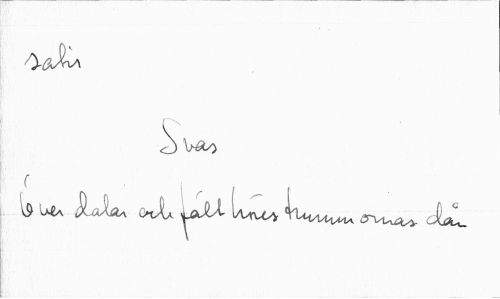 sahir
Svas
Över dalar och fält höres trummornas dån